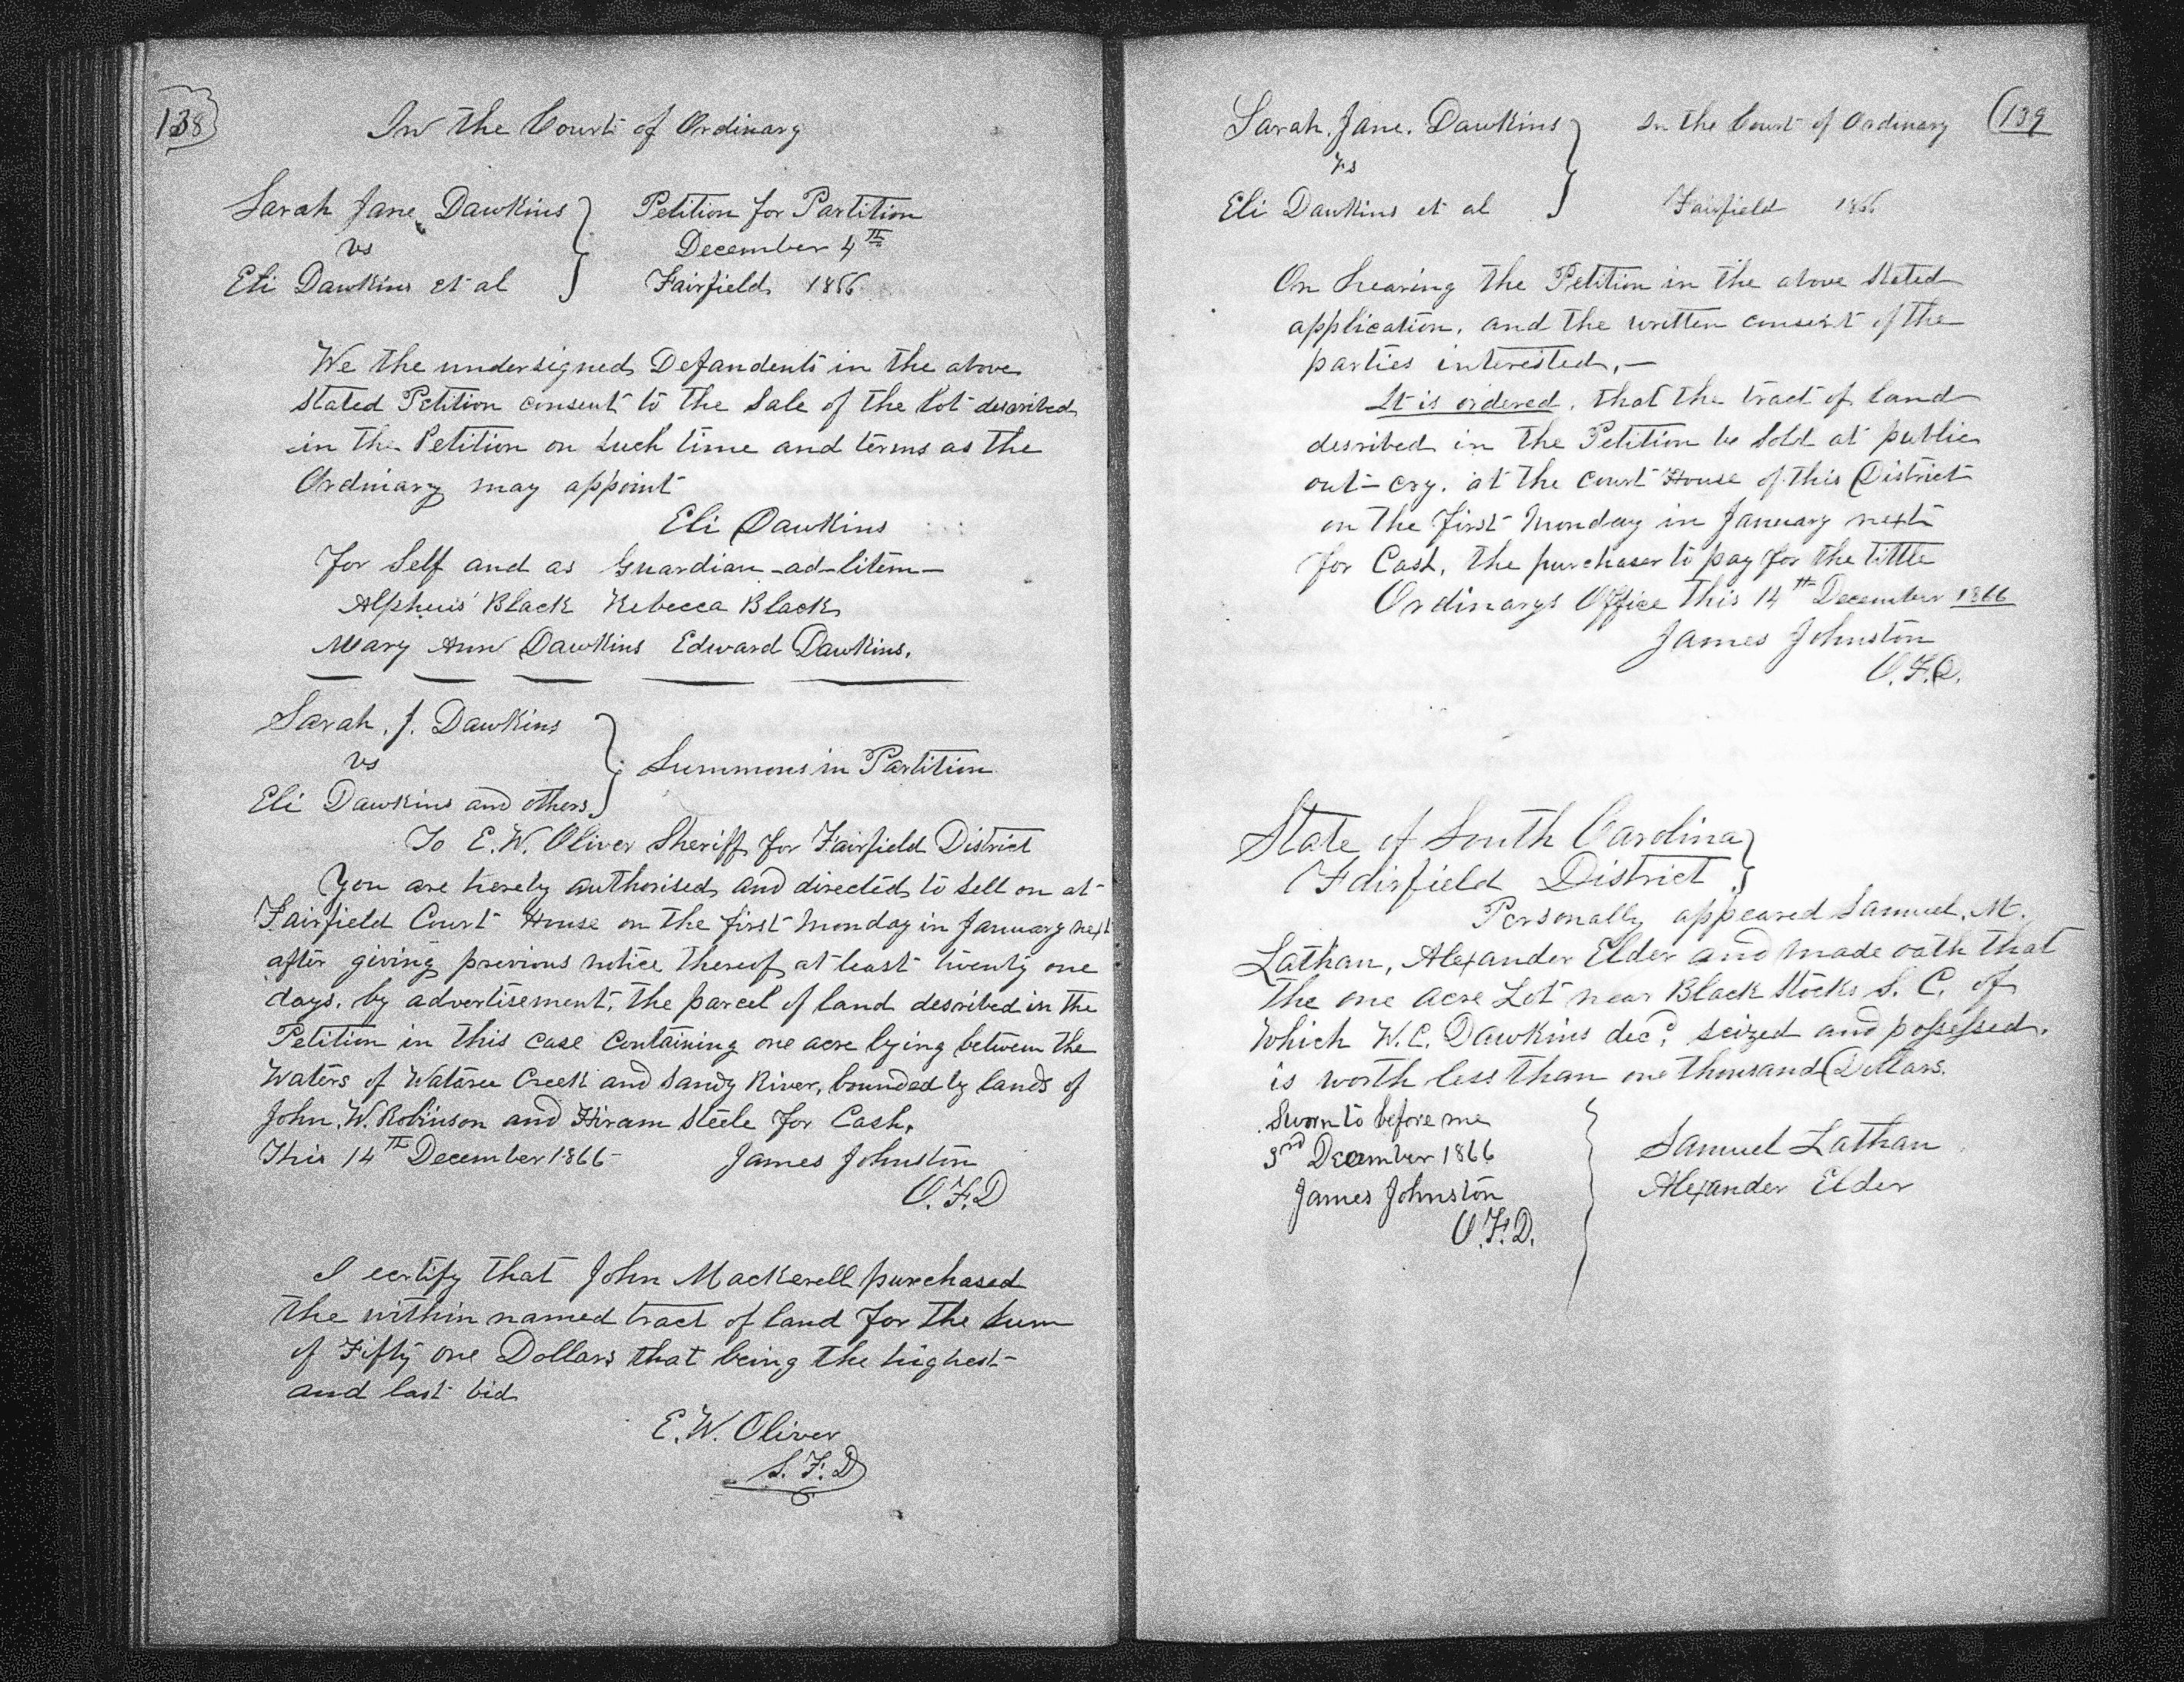 138
In the Court of Ordinary
Sarah Jane Dawkins } Petition for Partition
vs December 4th
Eli Dawkins et al Fairfield 1866
We the undersigned Defandents in the above
stated Petition consent to the Sale of the Lot desribed
in the Petition on such time and terms as the
Ordinary may appoint
Eli Dawkins
for Self and as Guardian-ad-litem
Alpheus Black Rebecca Black
Mary Ann Dawkins Edward Dawkins.
Sarah. J. Dawkins
vs } Summons in Partition
Eli Dawkins and others
To E. W. Oliver Sheriff for Fairfield District
You are hereby authorised and directed to sell on at
Fairfield Court House on the first Monday in January next
after giving previous notice thereof at least twenty one
days. by advertisement, the parcel of land desribed in the
Petition in this case containing one acre lying between the
Waters of Wateree Creek and Sandy River, bounded by lands of
John. W. Robinson and Hiram Steele for Cash.
This 14th December 1866 James Johnston
O. F. D
I certify that John Mackerell purchased
the within named tract of land for the sum
of Fifty one Dollars that being the highest
and last bid
E. W. Oliver
S. F. D
139
Sarah. Jane. Dawkins } In the Court of Ordinary
vs
Eli Dawkins et al Fairfield 1866
On hearing the Petition in the above stated
application. and the written consent of the
parties interested,—
It is ordered. that the tract of land
desribed in the Petition be sold at public
out-cry. at the Court House of this District
on the first Monday in January next
for Cash, the purchaser to pay for the tittle
Ordinarys Office this 14th December 1866
James Johnston
O. F. D.
State of South Carolina }
Fairfield District
Personally appeared Samuel. M.
Lathan, Alexander Elder and made oath that
the one acre Lot near Black Stocks S. C. of
which W. C. Dawkins decd. seized and possessed.
is worth less than one thousand Dollars.
Sworn to before me
3rd December 1866 } Samuel Lathan
James Johnston Alexander Elder
O. F. D.